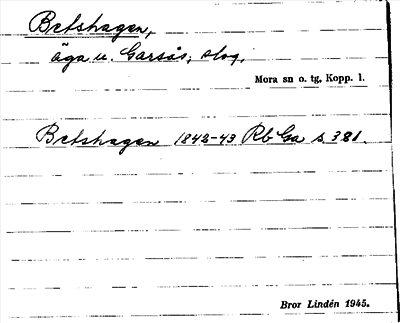 Betshagen,
äga u. Garsås; skog.
Mora sn o. tg, Kopp. l.
Betshagen 1842-43 Rb Ga s. 381.
Bror Lindén 1945.